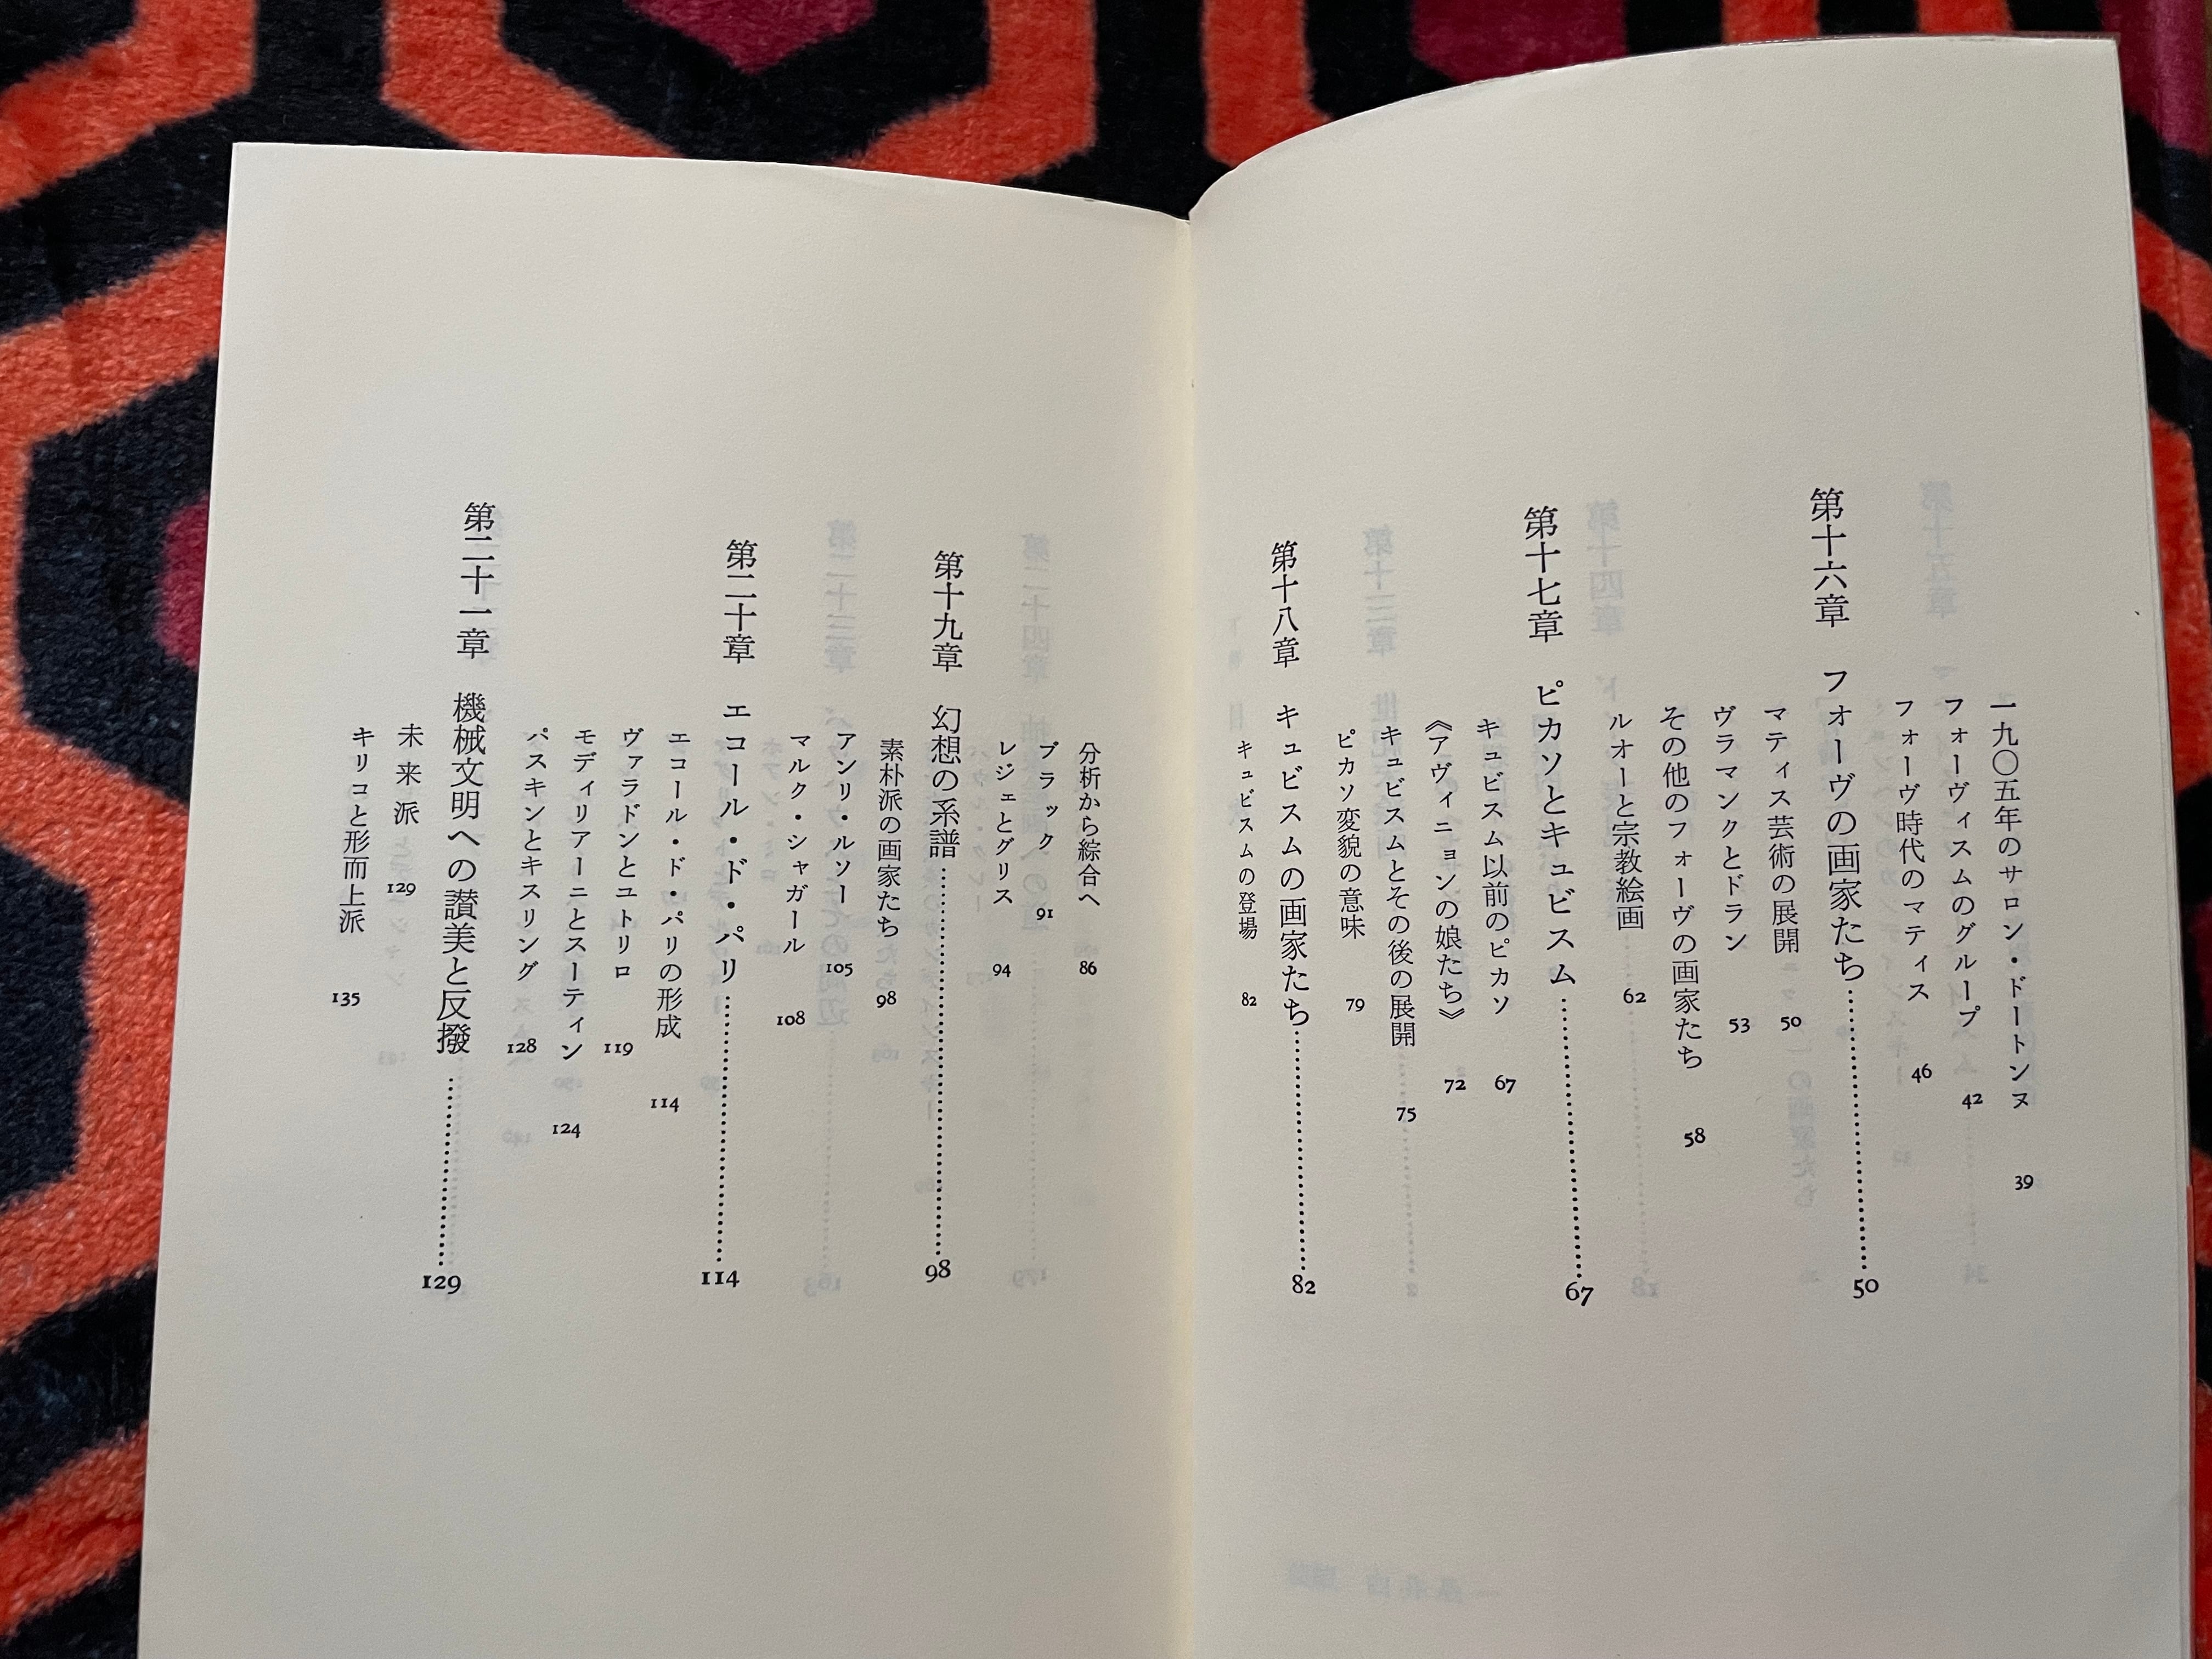 一九〇五年のサロン・ドートンヌ 39
フォーヴィスムのグループ 42
フォーヴ時代のマティス 46
第十六章 フォーヴの画家たち……50
マティス芸術の展開 50
ヴラマンクとドラン 53
その他のフォーヴの画家たち 58
ルオーと宗教絵画 62
第十七章 ピカソとキュビスム……67
キュビスム以前のピカソ 67
《アヴィニョンの娘たち》 72
キュビスムとその後の展開 75
ピカソ変貌の意味 79
第十八章 キュビスムの画家たち……82
キュビスムの登場 82
分析から綜合へ 86
ブラック 91
レジェとグリス 94
第十九章 幻想の系譜……98
素朴派の画家たち 98
アンリ・ルソー 105
マルク・シャガール 108
第二十章 エコール・ド・パリ……114
エコール・ド・パリの形成 114
ヴァラドンとユトリロ 119
モディリアーニとスーティン 124
パスキンとキスリング 128
第二十一章 機械文明への讃美と反撥……129
未来派 129
キリコと形而上派 135